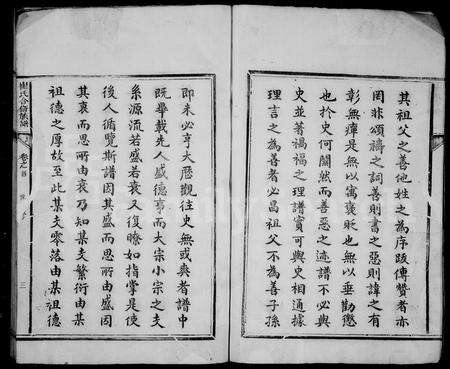 其祖父之善他姓之為序跋傳贊者亦
罔非頌禱之詞善則書之惡則諱之有
彰無癉是無以寓褒貶也無以垂勸懲
也於史何關然而善惡之迹譜不必與
史並著禍福之理譜實可與史相通據
理言之為善者必昌祖父不為善子孫
即未必亨大歷觀往史無或爽者譜中
既畢載先人盛德亨而大宗小宗之支
系源流若盛若衰又復瞭如指掌是使
後人循覽斯譜因其盛而思所由盛因
其衰而思所由衰乃知某支繁衍由某
祖德之厚故至此某支零落由某祖德
氏合修族譜
卷之首
三